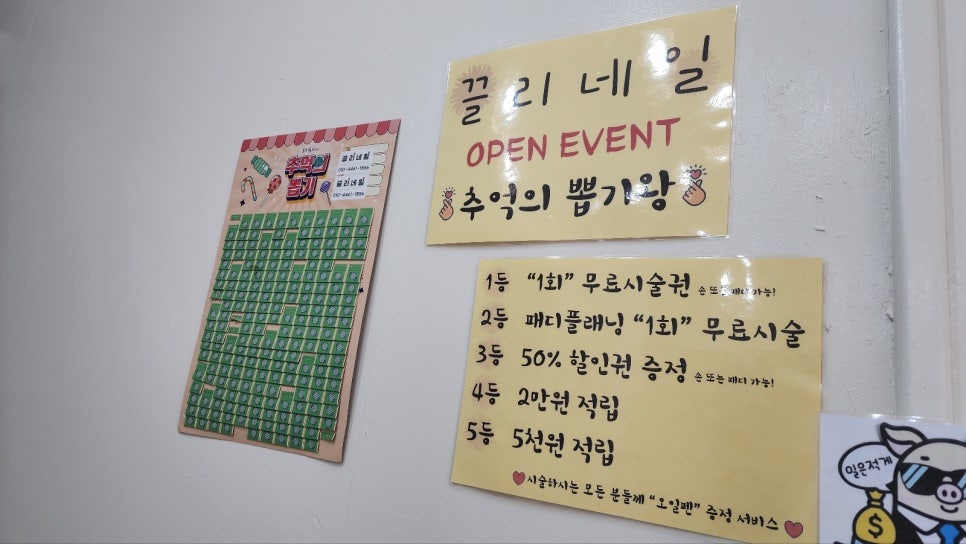 추억의
뽑기
끌리네일
010-4461-1856
끌리네일
010-4461-1856
끌리네일
OPEN EVENT
추억의 뽑기왕
1등 "1회" 무료시술권 손 또는 패디 가능!
2등 패디플래닝 "1회" 무료시술
3등 50% 할인권 증정 손 또는 패디 가능!
4등 2만원 적립
5등 5천원 적립
시술하시는 모든 분들께 "오일펜" 증정 서비스
일은적게
$